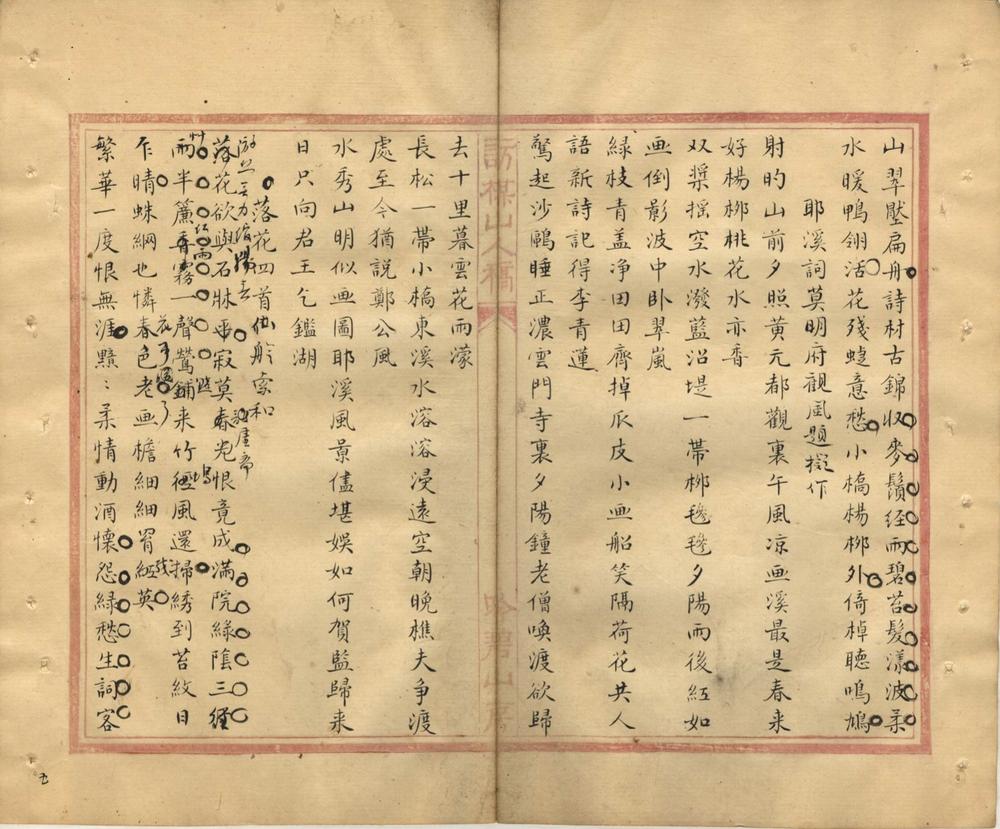 山翠壓扁舟詩村古錦收麥鬚經雨碧苔髮漾波柔
水暖鴨翎活花殘蝶意愁小橋楊柳外倚棹聽鳴鳩
耶溪詞莫明府觀風題擬作
射的山前夕照黃元都觀裏午風凉画溪最是春来
好楊柳桃花水亦香
双槳揺空水潑藍沿堤一帶柳毿毿夕陽雨後紅如
画倒影波中卧翠嵐
綠枝青盖净田田齊掉瓜皮小画船笑隔荷花共人
語新詩記得李青蓮
驚起沙鷗睡正濃雲門寺裏夕陽鐘老僧喚渡欲歸
訪楳山人稿
吟碧山房
去十里暮雲花雨濛
長松一帶小橋東溪水溶溶浸遠空朝晚樵夫争渡
處至今猶説鄭公風
水秀山明似画圖耶溪風景儘堪娯如何賀監歸来
日只向君王乞鑑湖
落花四首仙舲索和
落花欲與石牀平寂莫春光恨竟成滿院綠陰三徑
雨半簾香霧一聲鶯鋪来竹徑風還掃綉到苔紋日
乍晴蛛網也憐春色老画檐細細罥紅英
繁華一度恨無涯黯〻柔情動酒懷怨綠愁生詞客